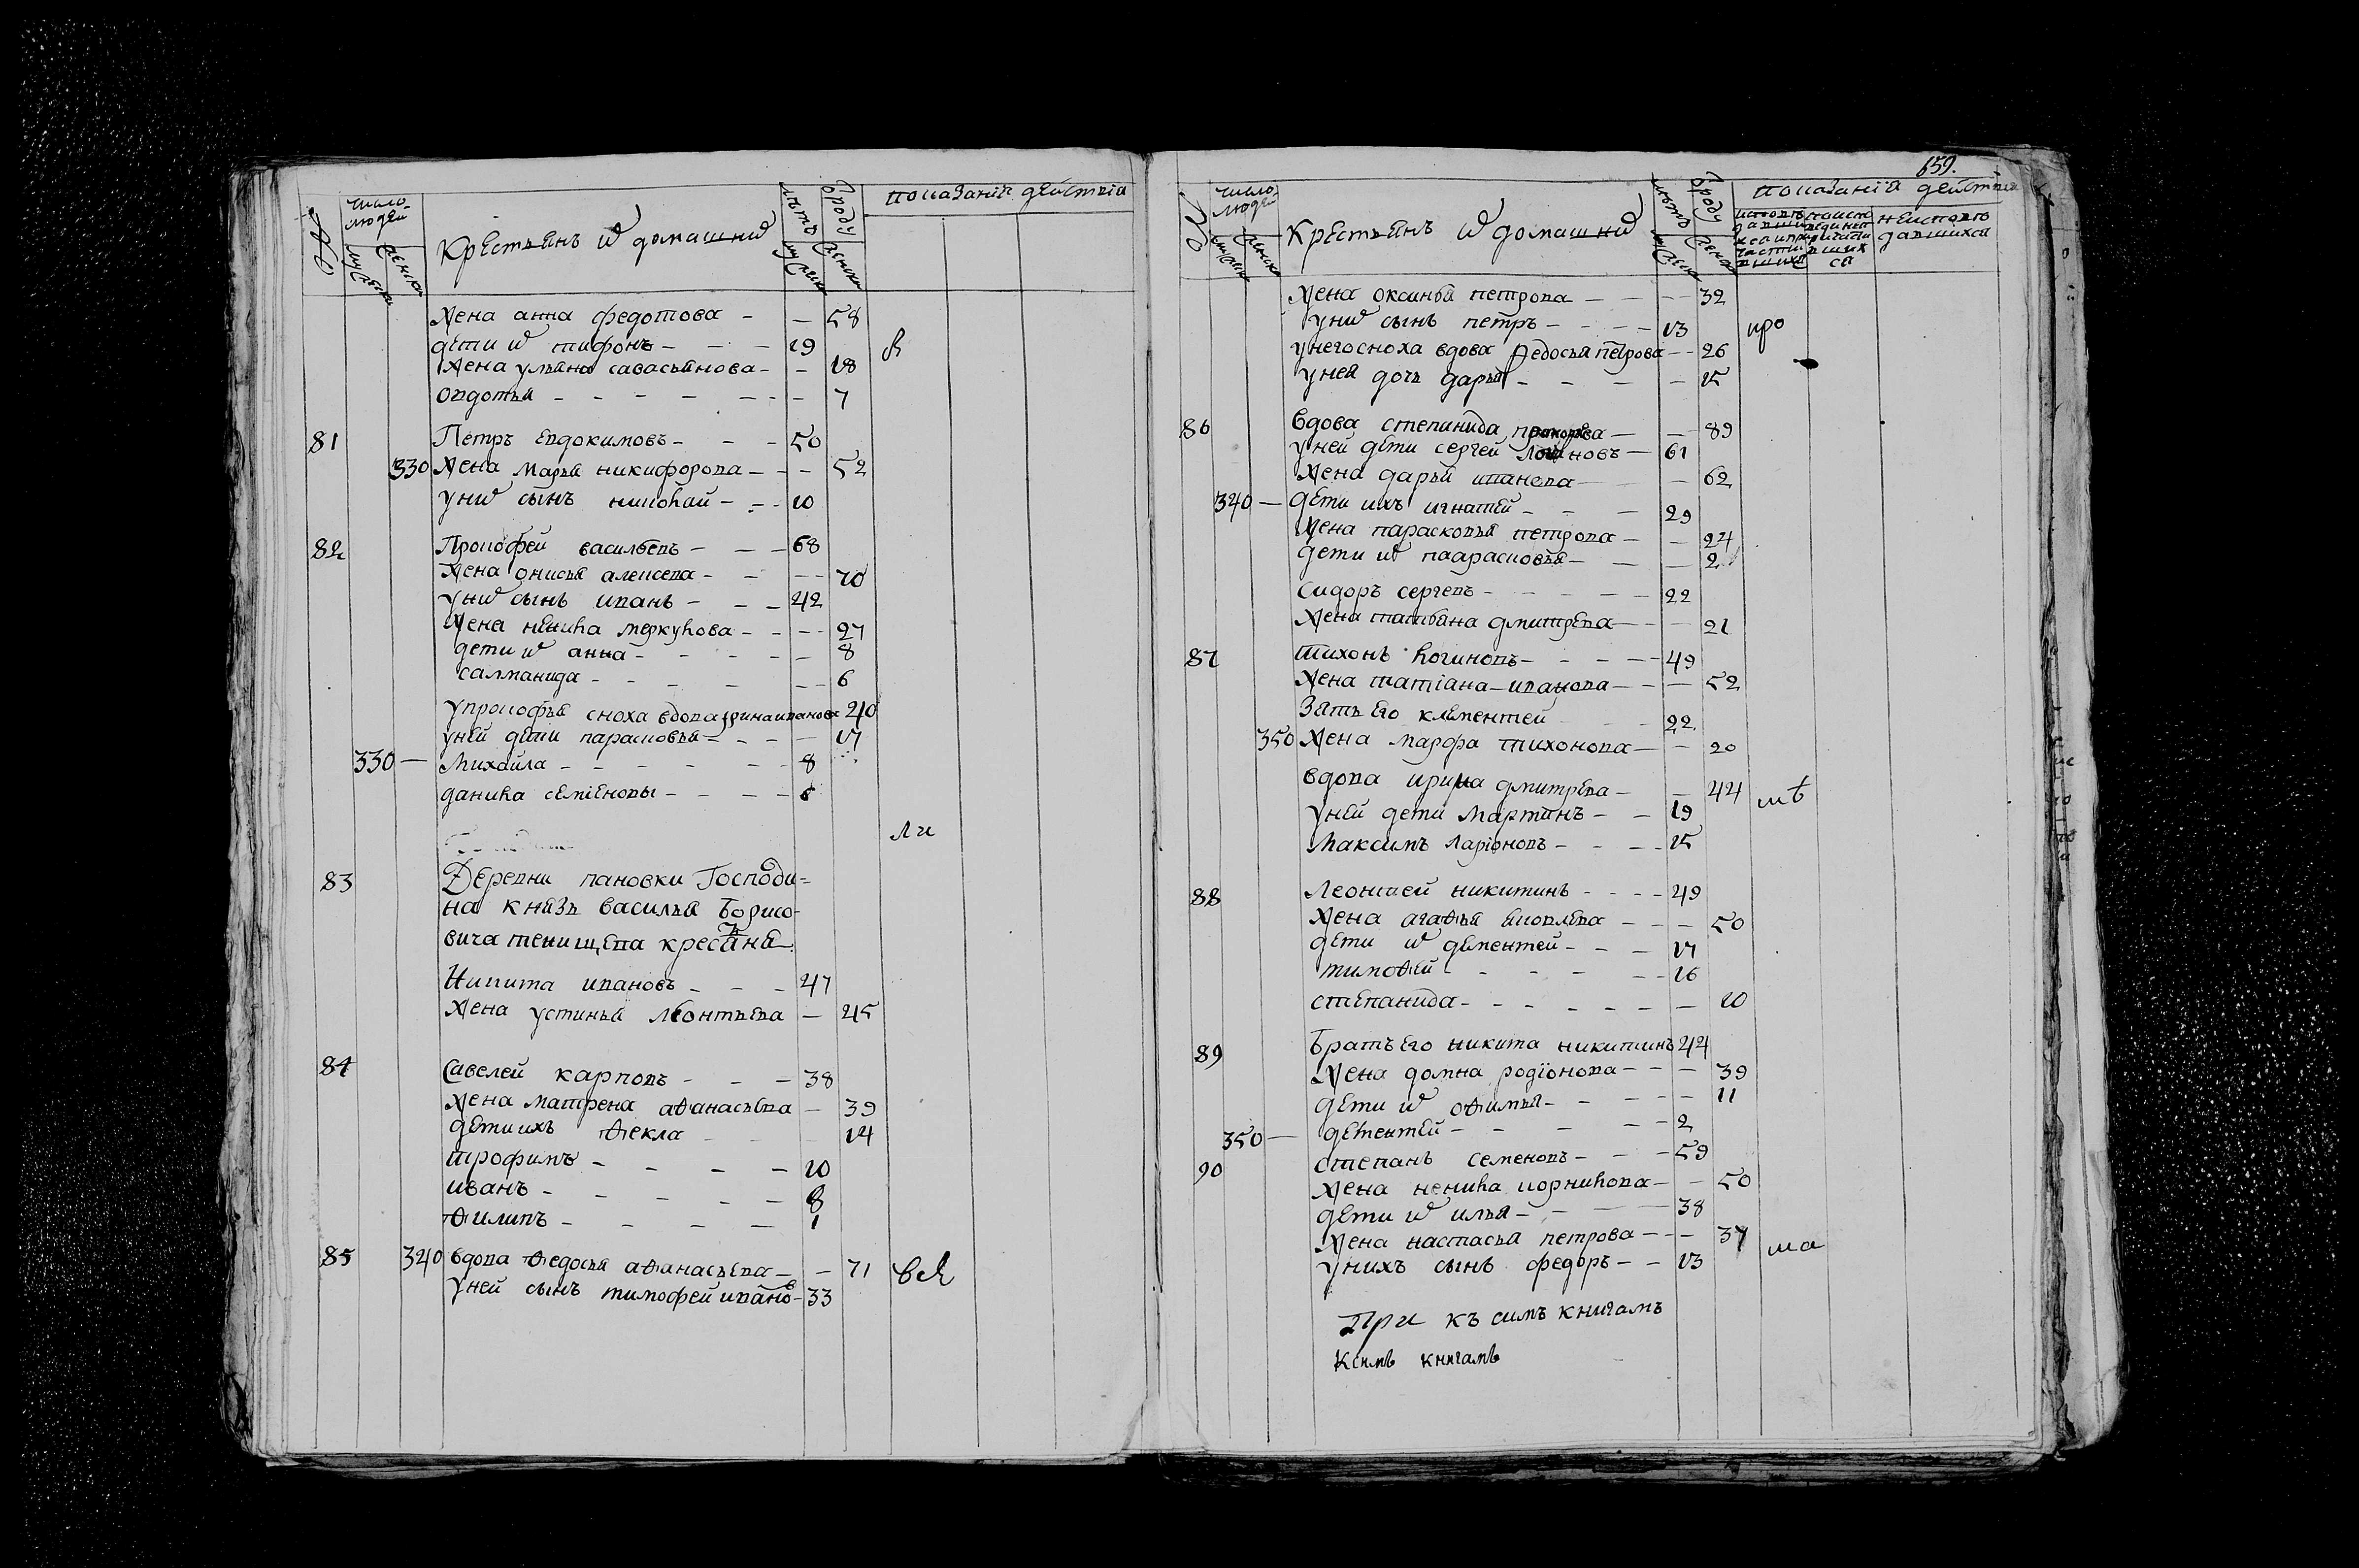 число людей
мужска
женска
Крестьянъ и домашних
лѣтъ роду
мужска
женска
показаніе действія
Жена анна федотова - - 58
дети их тифонъ - - - 19 я
Жена ульяна савасьянова - - 18
овдотья - - - - - - - 7
81 Петръ евдокимовъ - - - 50
330 Жена марья никифорова - - - 52
у них сынъ николай - - - 10
82 Прокофей васильевъ - - - 68
Жена онисья алексева - - - - 70
у них сынъ иванъ - - - 42
Жена ненила меркулова - - - - 27
дети их анна - - - - - 8
саламанида - - - - - - 6
у прокофья сноха вдова ирина иванова 40
у ней дети парасковья - - - - 17
330 — Михайла - - - - - - - 8
данила семеновы - - - - 6
ли
83 Деревни пановки Господи-
на князь василья Борисо-
вича тенищева кресьяня
Никита ивановъ - - - 47
Жена устинья леонтьева - 45
84 Савелей карповъ - - - 38
Жена матрена аѳанасьева - 39
дети ихъ ѳекла - - - 14
трофимъ - - - - 10
иванъ - - - - - 8
ѳилипъ - - - - 1
85 340 вдова ѳедосья аѳанасьева - - 71 вся
у ней сынъ тимофей иванов - 33
659.
число людей
мужска
женска
Крестьянъ и домашних
лѣтъ роду
мужска
женска
показанія действія
исповѣдавшихся и причастившихся
неисповѣдавшихся
Жена оксинья петрова - - - - 32
у них сынъ петръ - - - - 13 про
у него сноха вдова Федосья петрова - - 26
у ней дочь дарья - - - - 15
86 вдова степанида прокофева - - 89
у ней дети сергей логиновъ - 61
Жена дарья иванова - - 62
340 — дети ихъ игнатей - - - 29
Жена парасковья петрова - - 24
дети их паарасковья - - - 2
Сидоръ сергевъ - - - - - 22
Жена татьяна дмитрева - - - 21
87 тихонъ логиновъ - - - - 49
Жена татіана - иванова - - - 52
Зять его клементей - - 22
350 Жена марфа тихонова - - 20
вдова ирина дмитрева - - 44 мѣ
у ней дети мартинъ - - 19
Максимъ ларіоновъ - - - - 15
88 Леонтей никитинъ - - - - 49
Жена агаѳья яковлева - - - 50
дети их дементей - - - 17
тимоѳей - - - - - - 16
степанида - - - - - - 10
89 Братъ его никита никитинъ 44
Жена домна родіонова - - - 39
дети их оѳимья - - - - - 11
350 — дементей - - - - - 2
90 степанъ семеновъ - - - 59
Жена ненила корнилова - - 50
дети их илья - - - - 38
Жена настасья петрова - - - 37
у нихъ сынъ федоръ - - 13 ша
При къ симъ книгамъ
Ксимъ книгамъ